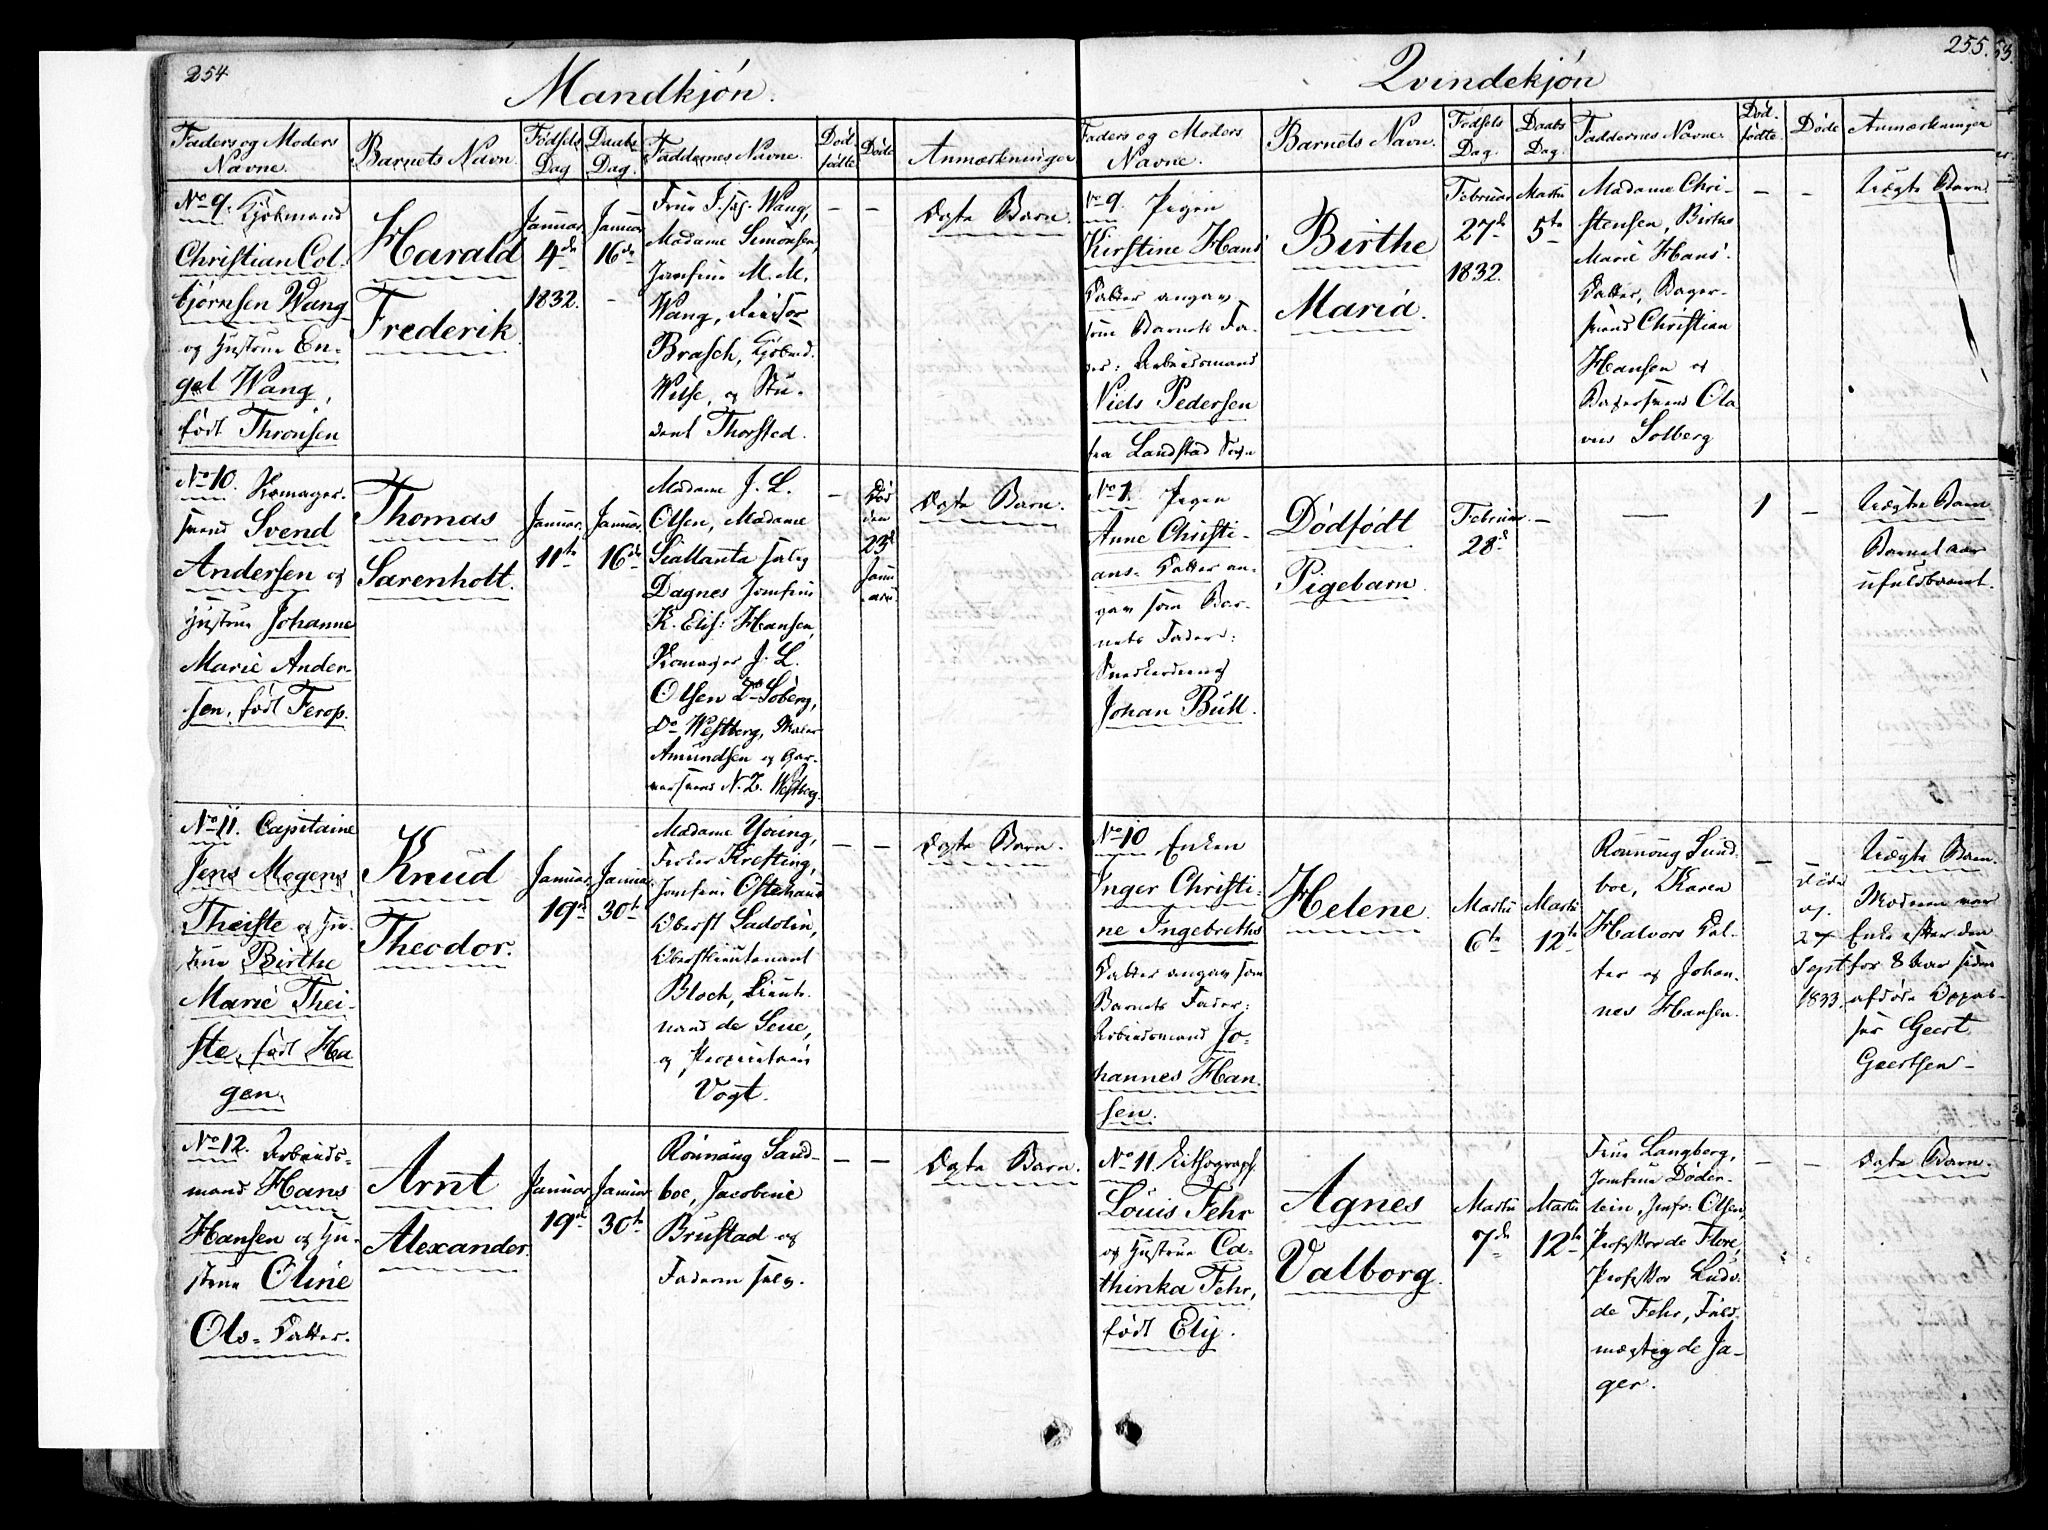 254
Mandkjón.
Faders og Moders
Navne.
Barnets Navn.
Fødsels
Dag
Daabs
Dag.
Faddernes Navne.
Død
fødte.
Døde
Anmærkninger
No 9. Kjøbmand
Christian Col-
bjørnsen Wang
og Hustrue En-
gel Wang,
født Thronsen
Harald
Frederik.
Januar.
4de
1832.
Januar
16de
Wang,
Madame Simonsen,
Jomfrue M. M.
Wang,
Brasch, Kjøbmd.
Wilse, og Stu-
dent Thorsted.
—
—
Ægte Barn.
No 10.
Svend
Andersen og
Hustrue Johanne
Marie Ander-
sen, født Ferop.
Thomas
Sarenholt.
Januar.
11te
Januar.
16de
Madame J. L.
Olsen, Madame
Dagnes Jomfrue
K. Elis: Hansen,
J. L.
Olsen Do Soberg,
Do Westberg, Maler
Amundsen og Gar-
N. Z. Westberg.
—
Død
den
23d
Janu-
arii.
Ægte Barn.
No 11. Capitaine
Jens Mogens
Theiste og Hu-
strue Birthe
Marie Thei-
ste, født Ha
gen.
Knud
Theodor.
Januar
19de
Januar
30te
Madame Young,
Frøken Krefting,
Jomfrue
Oberst Sadolin,
Oberstlieutenant
Bloch, Lieute-
nand de Seue,
og Proprietair
Vogt.
—
—
Ægte Barn.
No 12. Arbeids-
mand Hans
Hansen og Hu-
strue Oline
Ols- Datter.
Arnt
Alexander.
Januar
19de
Januar
30te
Rónnaug Sand-
boe, Jacobine
Brustad og
Faderen selv.
—
—
Ægte Barn.
255.
Qvindekjón
Faders og Moders
Navne.
Barnets Navn.
Fødsels
Dag.
Daabs
Dag.
Faddernes Navne.
Død-
fødte.
Døde
Anmærkninger
No 9. Pigen
Kirstine Hans
Datter angav
som Barnets Fa-
der: Arbeidsmand
Niels Pedersen
fra Landstad Sogn
Birthe
Maria.
Februar
27de
1832.
Martii
5te
Madame Chri-
stensen, Birthe
Marie Hans'
Datter, Bager-
svend Christian
Hansen og
Bagersvend Ola
vus Solberg
—
—
Uægte Barn
No 1. Pigen
Anne Christi-
ans- Datter an-
gav som Bar-
nets Fader:
Johan Bull.
Dødfødt
Pigebarn.
Februar
28d
—
—
1
—
Uægte Barn
Barnet var
ufuldbaaret.
No 10 Enken
Inger Christi-
ne Ingebreths
Datter angav som
Barnets Fader:
Arbeidsmand Jo-
hannes Han-
sen.
Helene.
Martii
6te
Martii
12te
Rónnoug Sand-
boe, Karen
Halvors Dat-
ter og Johan-
nes Hansen.
—
Døde
27
Sept
1833.
Uægte Barn.
Moderen var
Enke efter den
for 8 Aar siden
afdøde Oppas-
ser Geert
Geertsen -
No 11. Lithograph
Louis Fehr
og Hustrue Ca-
thinka Fehr,
født Ely.
Agnes
Valborg.
Martii
7de
Martii
12te
Frue Langberg,
Jomfrue Døder-
lein, Jmfr: Olsen,
Professor de Flore,
Professor Ludv.
de Fehr, Fuld-
mægtig de Ja-
ger.
—
—
Ægte Barn.